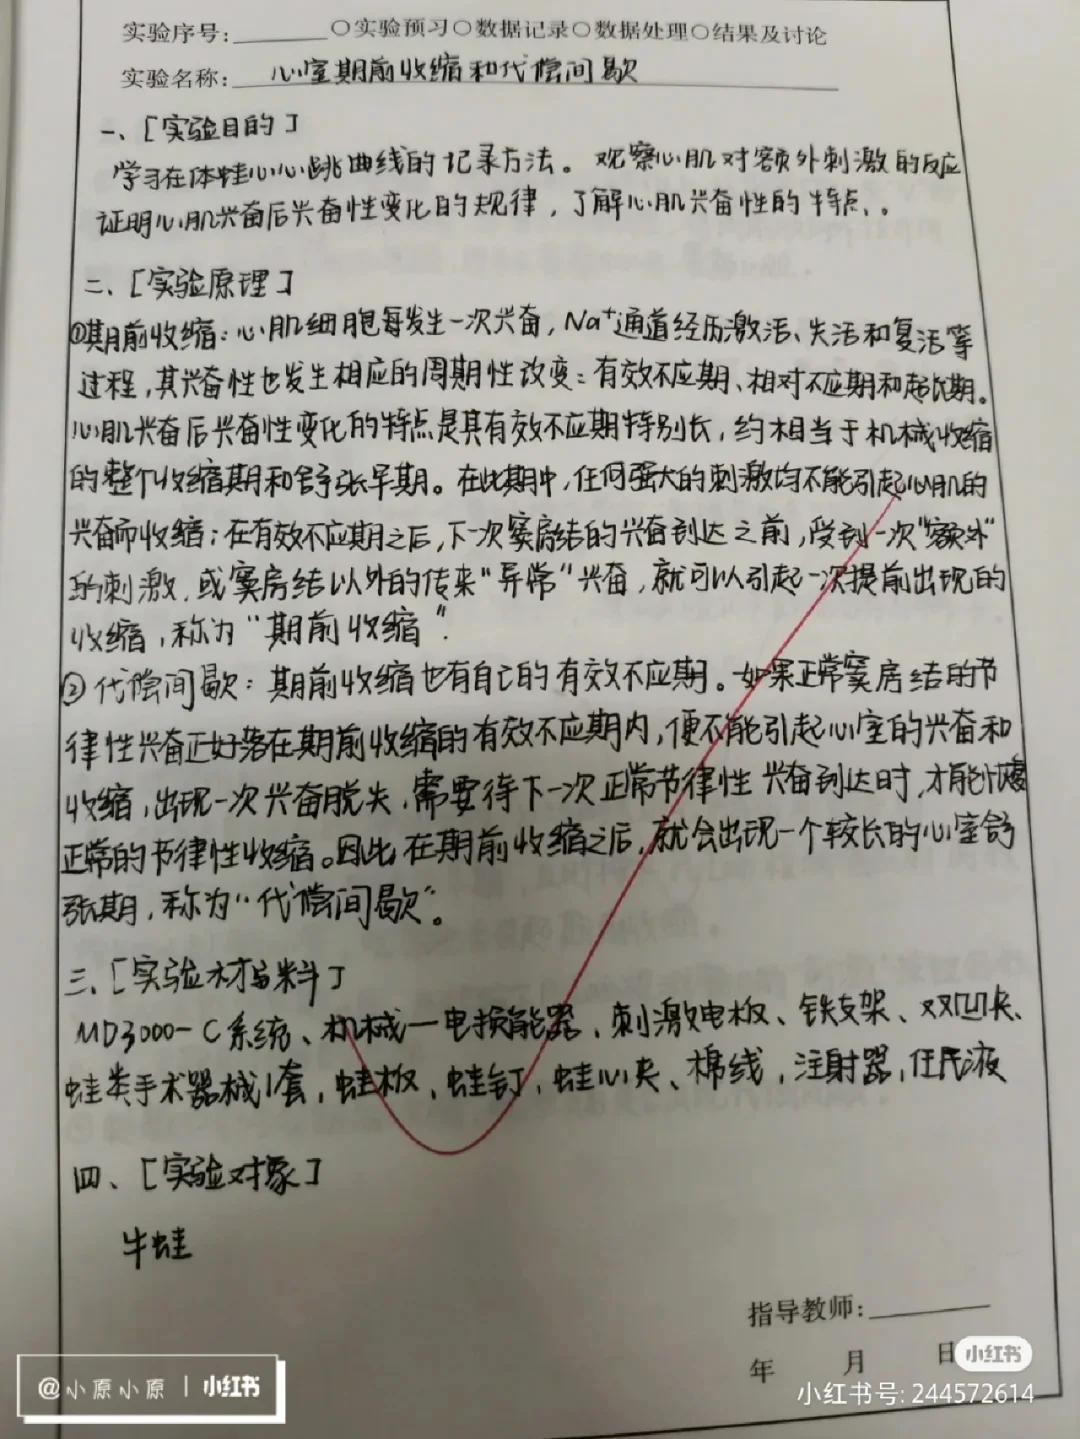 实验序号:________ ○实验预习○数据记录○数据处理○结果及讨论
实验名称: 心室期前收缩和代偿间歇
一、[实验目的]
学习在体蛙心心跳曲线的记录方法。观察心肌对额外刺激的反应
证明心肌兴奋后兴奋性变化的规律,了解心肌兴奋性的特点。
二、[实验原理]
①期前收缩:心肌细胞每发生一次兴奋,Na⁺通道经历激活、失活和复活等
过程,其兴奋性也发生相应的周期性改变:有效不应期、相对不应期和超常期。
心肌兴奋后兴奋性变化的特点是其有效不应期特别长,约相当于机械收缩
的整个收缩期和舒张早期。在此期中,任何强大的刺激均不能引起心肌的
兴奋而收缩;在有效不应期之后,下一次窦房结的兴奋到达之前,受到一次“额外”
的刺激,或窦房结以外的传来“异常”兴奋,就可以引起一次提前出现的
收缩,称为“期前收缩”.
②代偿间歇:期前收缩也有自己的有效不应期。如果正常窦房结的节
律性兴奋正好落在期前收缩的有效不应期内,便不能引起心室的兴奋和
收缩,出现一次兴奋脱失,需要待下一次正常节律性兴奋到达时,才能恢复
正常的节律性收缩。因此在期前收缩之后,就会出现一个较长的心室舒
张期,称为“代偿间歇”。
三、[实验材料]
MD3000-C系统、机械一电换能器、刺激电极、铁支架、双凹夹、
蛙类手术器械1套,蛙板、蛙钉,蛙心夹、棉线,注射器,任氏液
四、[实验对象]
牛蛙
指导教师:________
年 月 日
小红书
@小原小原 | 小红书
小红书号: 244572614